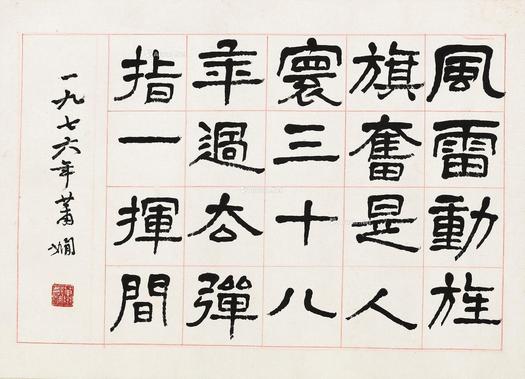 風雷動旌
旗奮是人
寰三十八
年過去彈
指一揮間
一九七六年蕭嫻